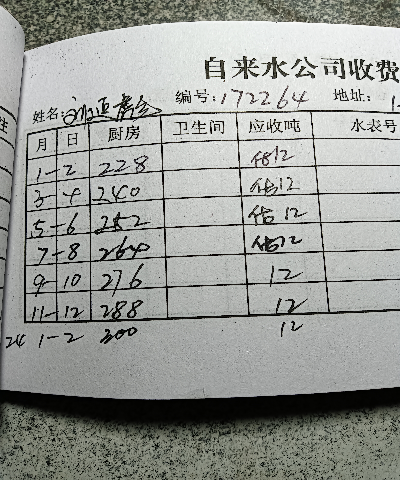 自来水公司收费
姓名: 编号:172264 地址:
月 日 厨房 卫生间 应收吨 水表号
1-2 228 估12
3-4 240 估12
5-6 252 估12
7-8 264 估12
9-10 276 12
11-12 288 12
24 1-2 300 12